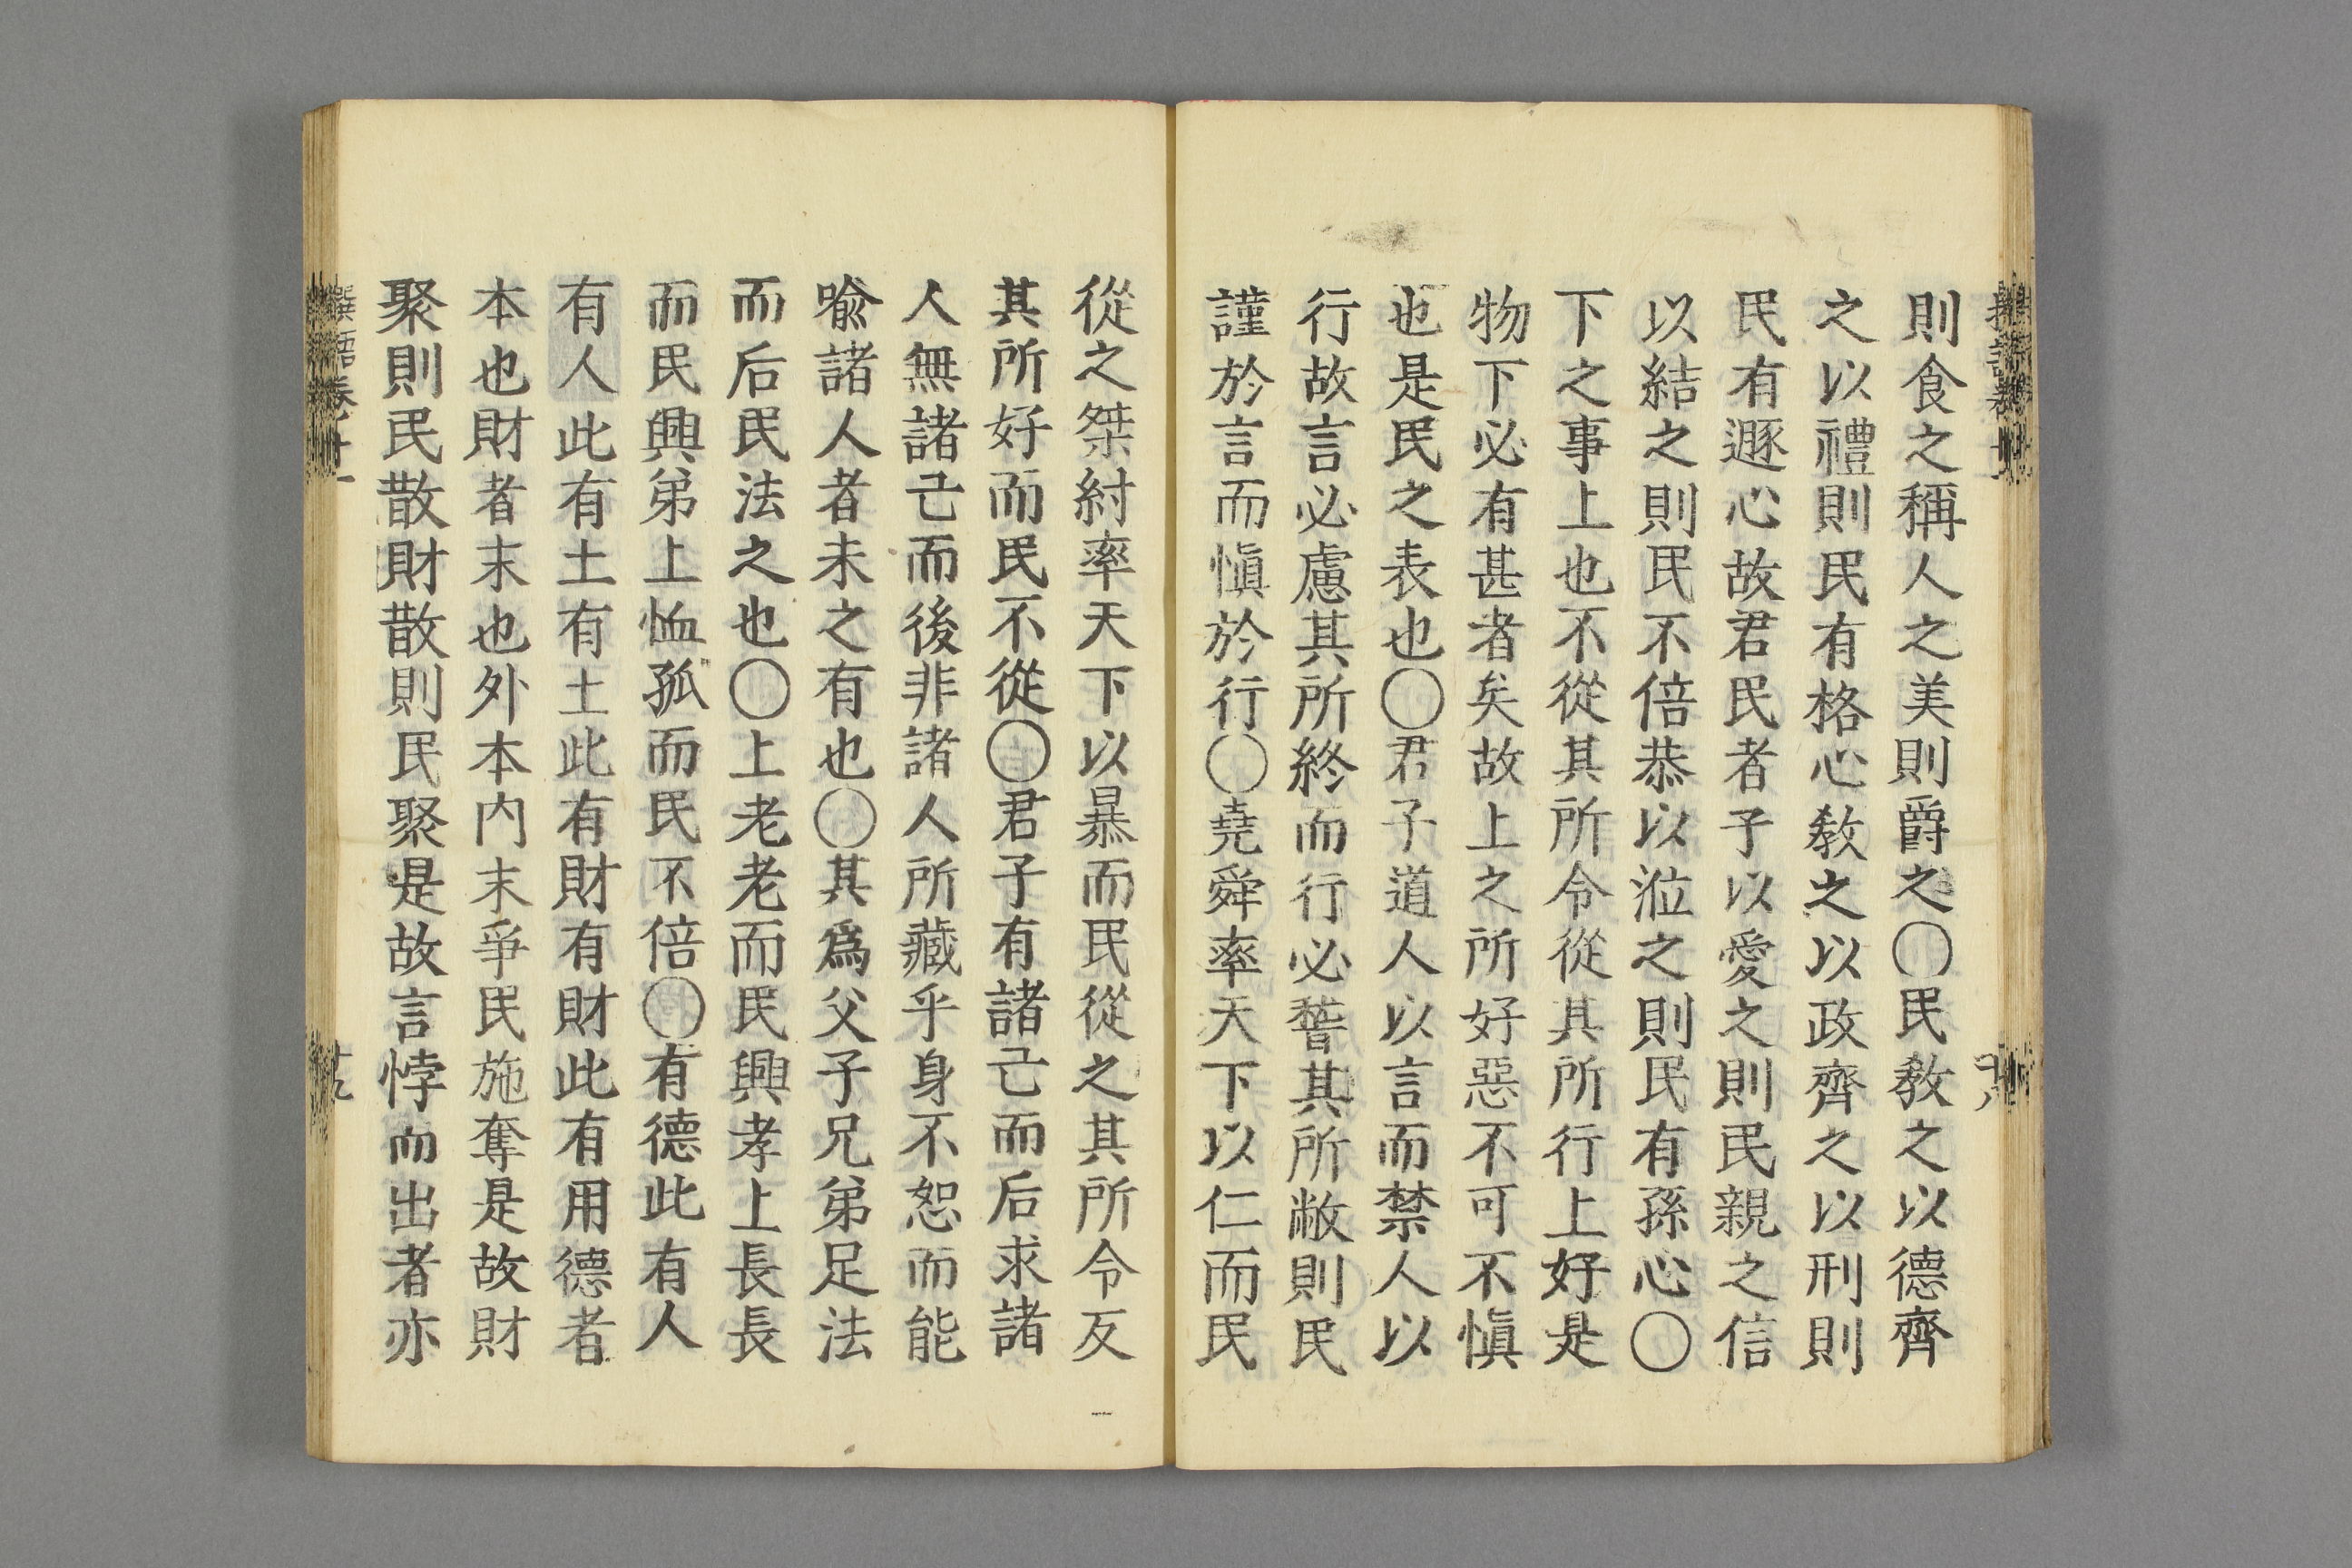 則食之稱人之美則爵之〇民敎之以德齊
之以禮則民有格心敎之以政齊之以刑則
民有遯心故君民者子以愛之則民親之信
以結之則民不倍恭以涖之則民有孫心〇
下之事上也不從其所令從其所行上好是
物下必有甚者矣故上之所好惡不可不愼
也是民之表也〇君子道人以言而禁人以
行故言必慮其所終而行必稽其所敝則民
謹於言而愼於行〇堯舜率天下以仁而民
從之桀紂率天下以暴而民從之其所令反
其所好而民不從〇君子有諸己而后求諸
人無諸己而後非諸人所藏乎身不恕而能
喩諸人者未之有也〇其爲父子兄弟足法
而后民法之也〇上老老而民興孝上長長
而民興弟上恤孤而民不倍〇有德此有人
有人此有土有土此有財有財此有用德者
本也財者末也外本內末爭民施奪是故財
聚則民散財散則民聚是故言悖而出者亦